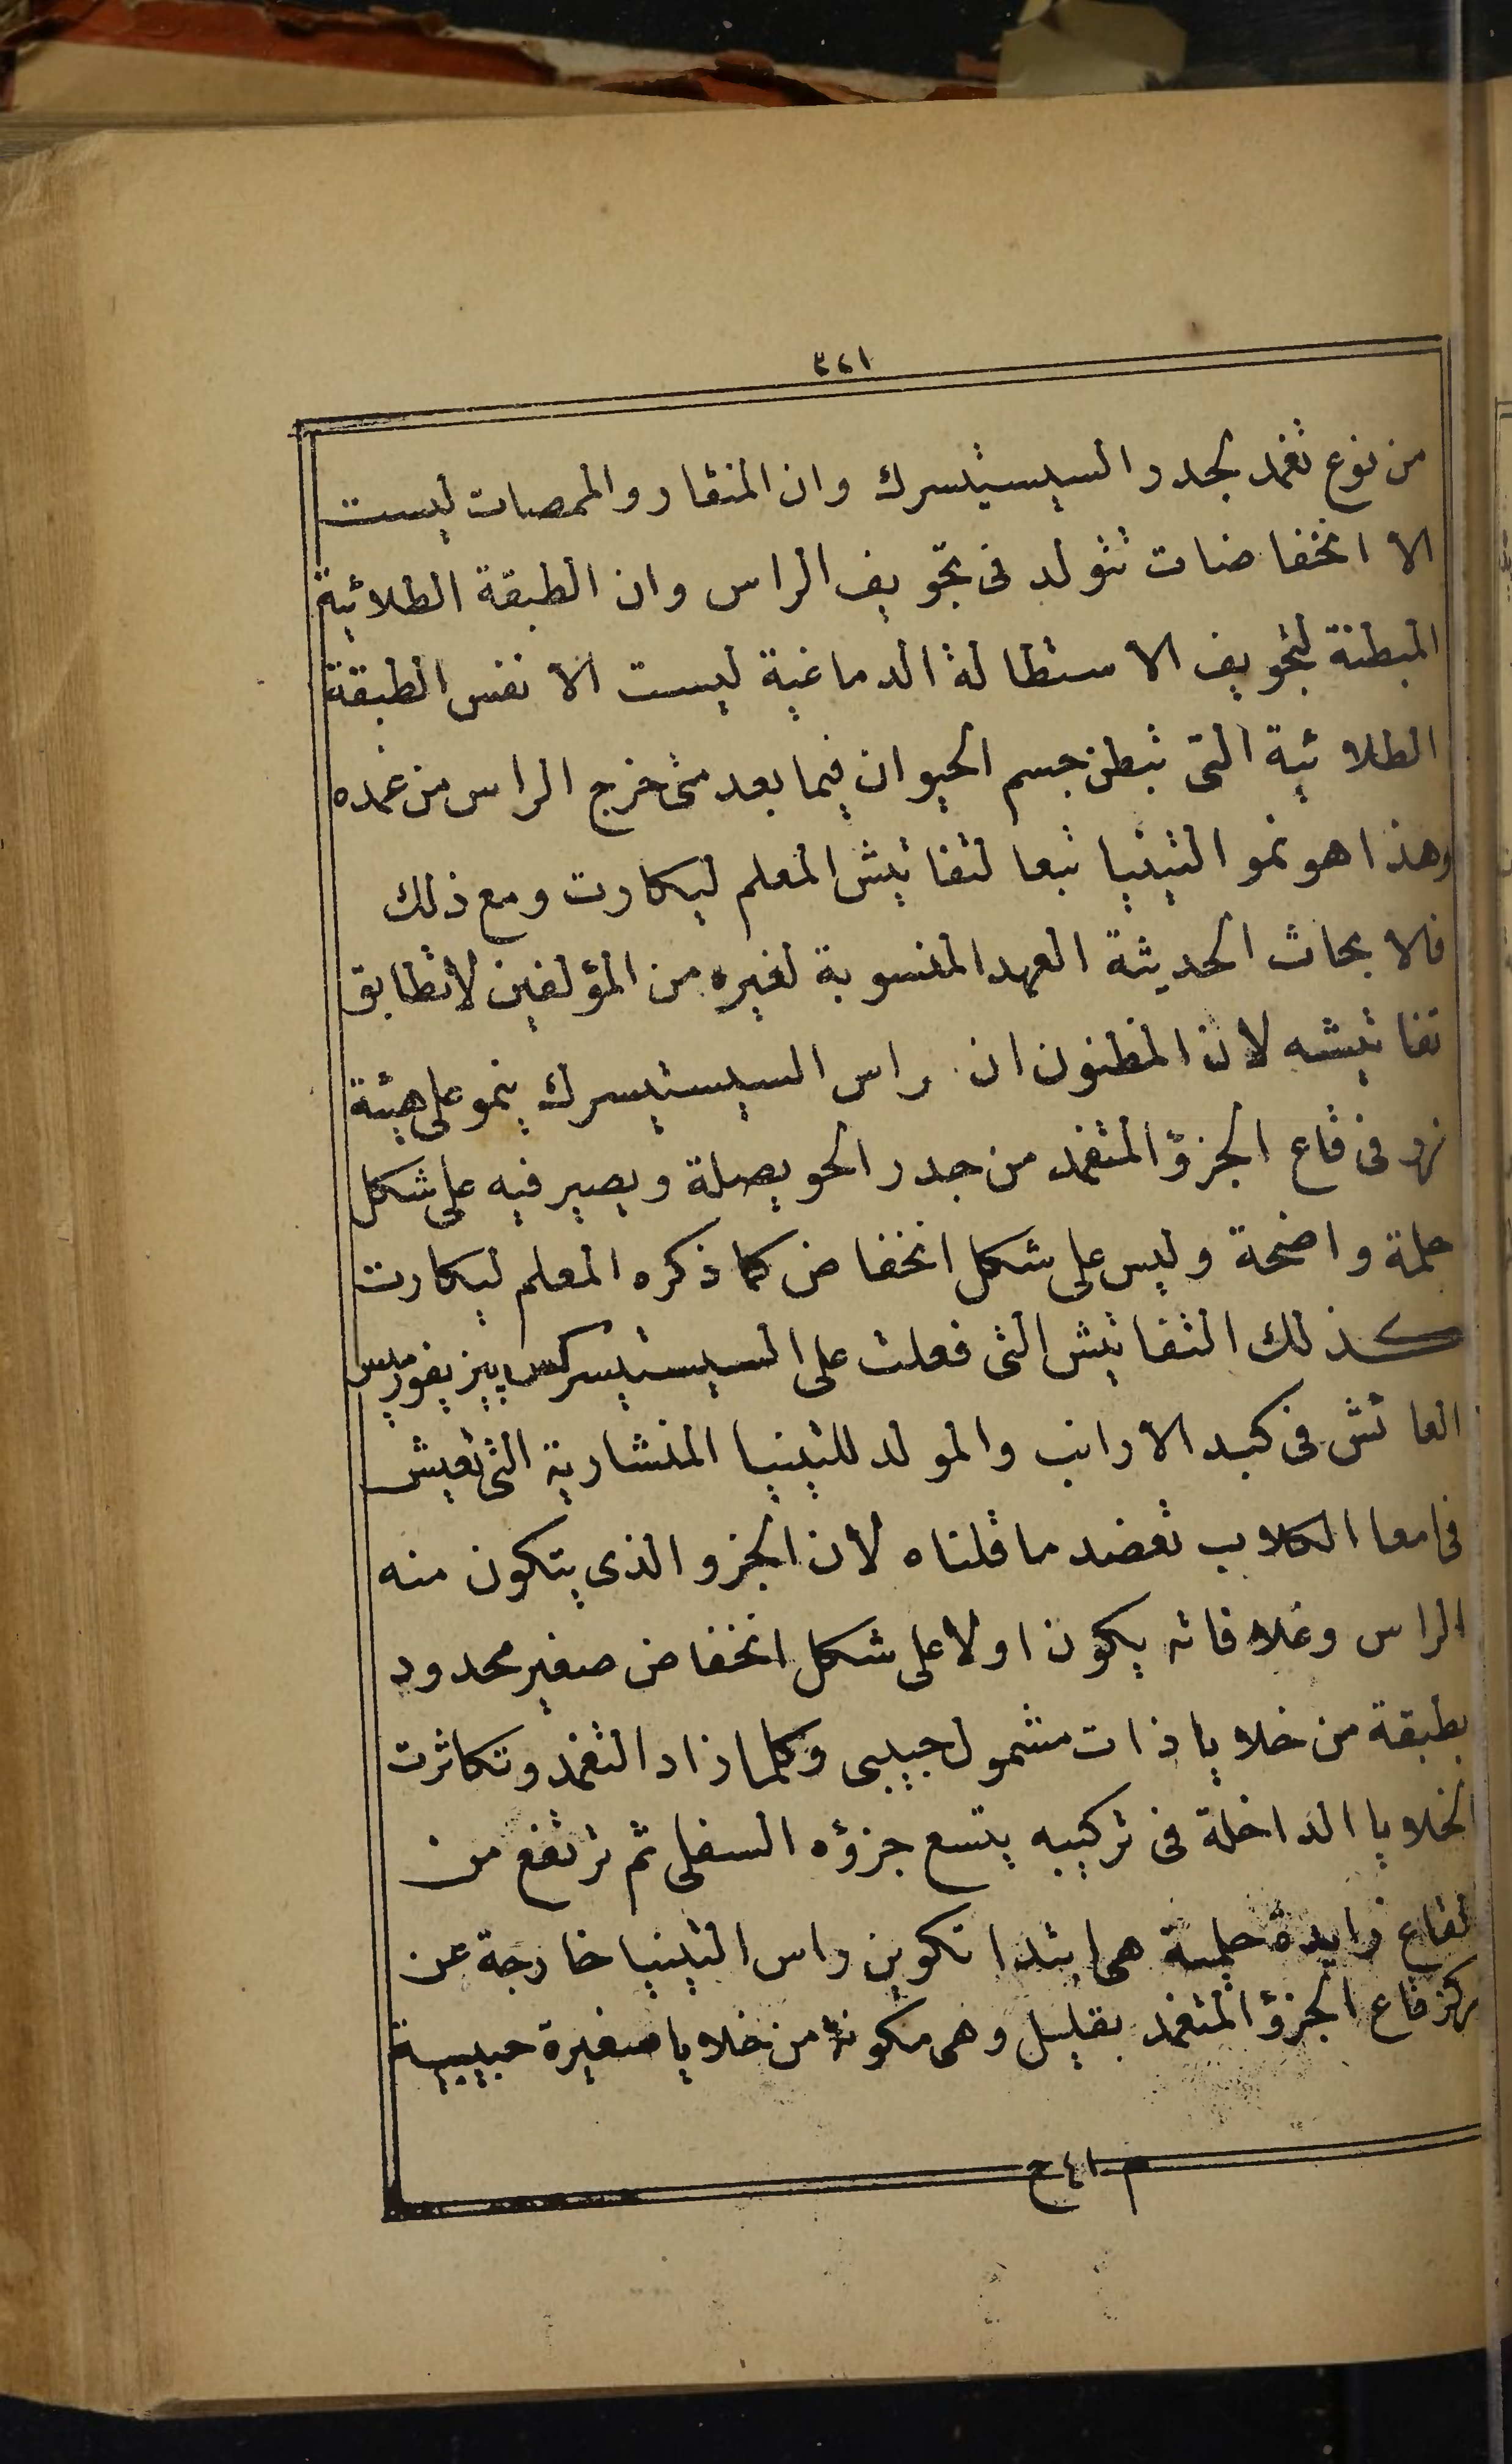 ٣٢١
من نوع تغمد لجدر السيستيسرك وان المنقار والممصات ليست
الا انخفاضات تتولد فى تجويف الراس وان الطبقة الطلائية
المبطنة لتجويف الاستطالة الدماغية ليست الا نفس الطبقة
الطلائية التى تبطن جسم الحيوان فيما بعد متى خرج الراس من غمده
وهذا هو نمو التينيا تبعا لتفاتيش المعلم ليكارت ومع ذلك
فالابحاث الحديثة العهد المنسوبة لغيره من المؤلفين لا تطابق
تفاتيشه لان المظنون ان راس السيستيسرك ينمو على هيئة
زر فى قاع الجزؤ المتغمد من جدر الحويصلة ويصير فيه على شكل
حلمة واضحة وليس على شكل انخفاض كما ذكره المعلم ليكارت
كذلك التفاتيش التى فعلت على السيستيسركس پيزيفورميس
العائش فى كبد الارانب والمولد للتينيا المنشارية التى تعيش
فى امعا الكلاب تعضد ما قلناه لان الجزو الذى يتكون منه
الراس وغلافاته يكون اولا على شكل انخفاض صغير محدود
بطبقة من خلايا ذات مشمول حبيبى وكلما زاد التغمد وتكاثرت
الخلايا الداخلة فى تركيبه يتسع جزؤه السفلى ثم ترتفع من
القاع زايدة حلمية هى ابتدا تكوين راس التينيا خارجة عن
مركز قاع الجزؤ المتغمد بقليل وهى مكونة من خلايا صغيرة حبيبية
م ٤١ ح